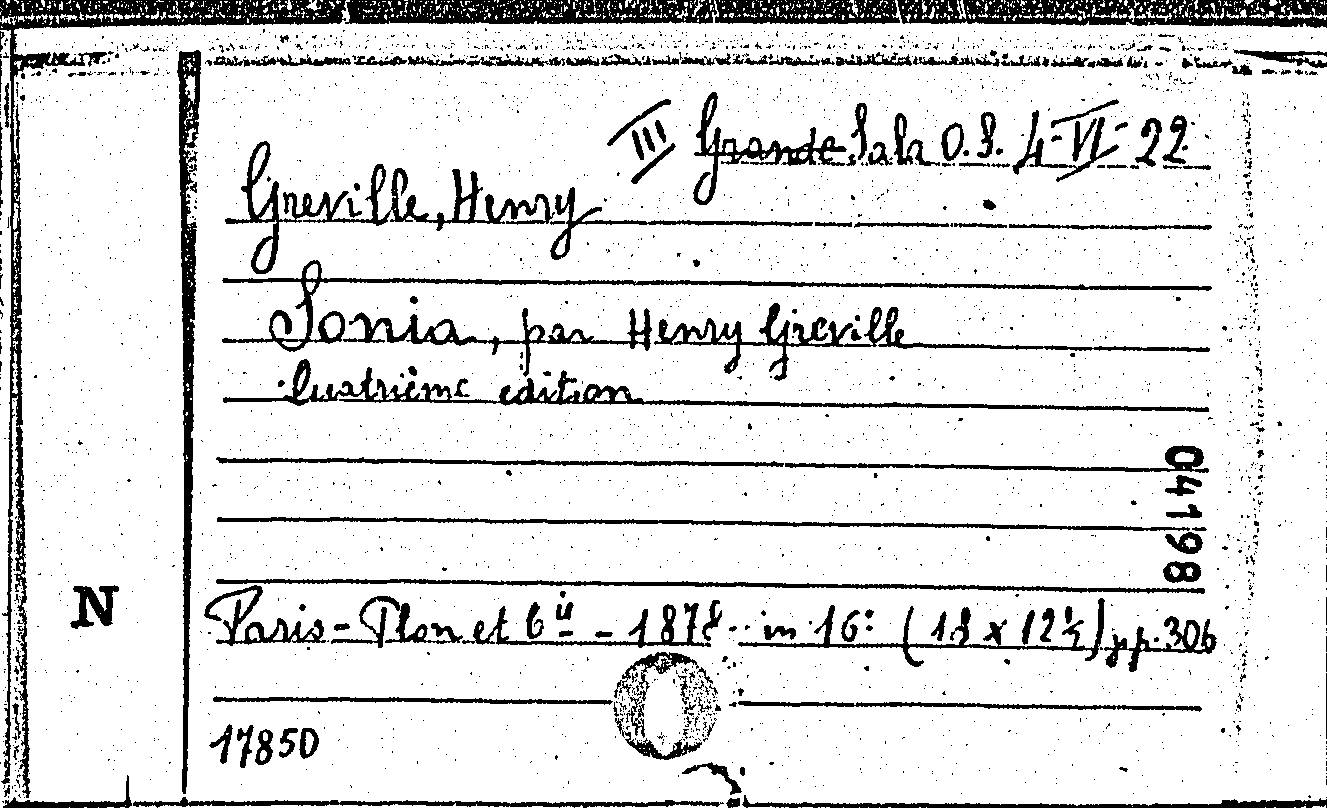 III Grande Sala O.S. 4-VI-22
Greville, Henry
Sonia, par Henry Greville
Quatrième edition
04198
N
Paris - Plon et Cie - 1878 - in 16: (18 x 12½) pp. 306
17850